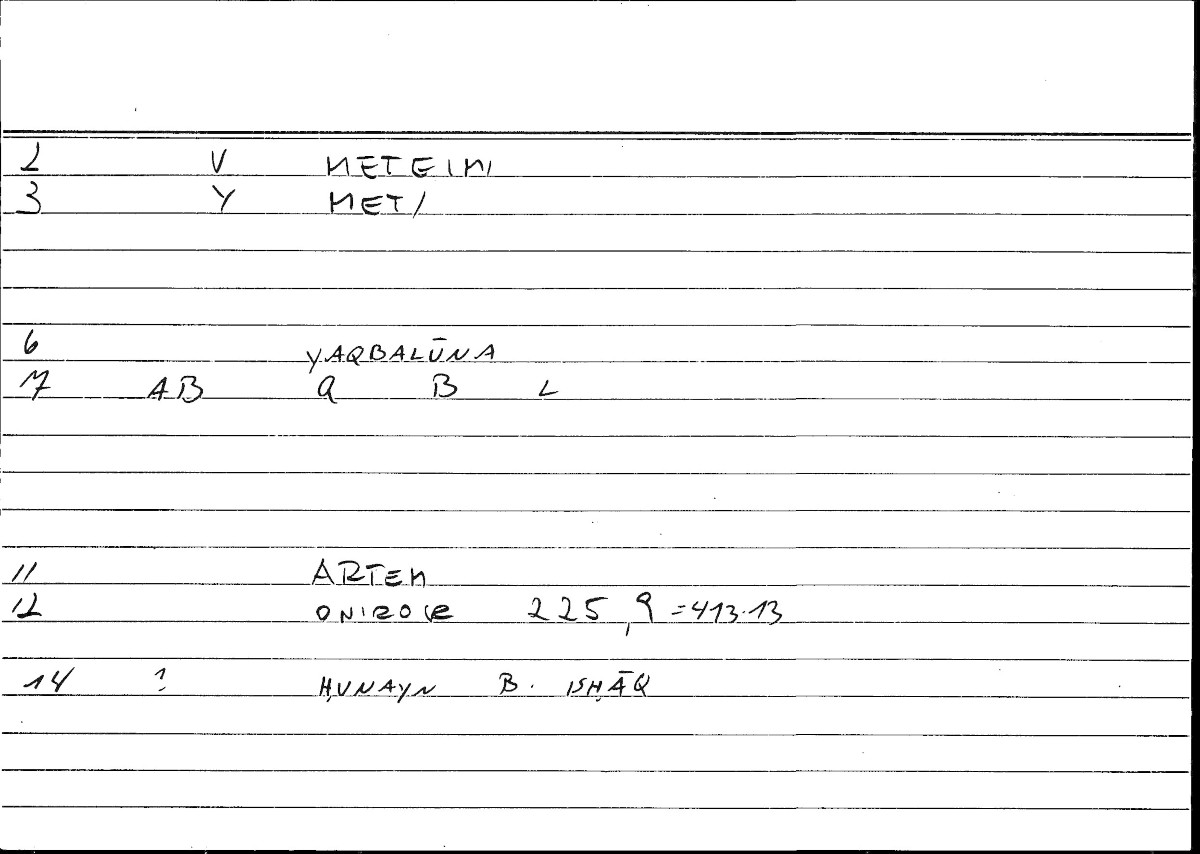 2 V METEIMI
3 Y MET/
6 YAQBALŪNA
7 AB Q B L
11 ARTEM
12 ONIROCR 225,9 =413.13
14 ? ḤUNAYN B. ISḤĀQ